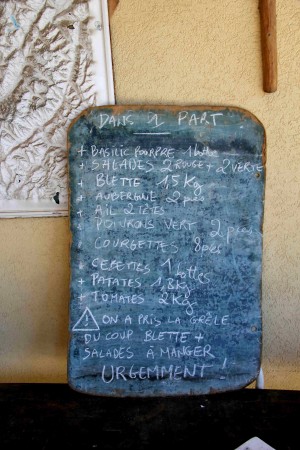 DANS 1 PART
+ BASILIC POURPRE 1 botte
+ SALADES 2 ROUGE + 2 VERTE
+ BLETTE 1,5 Kg
+ AUBERGINE 2 pces
+ AIL 2 TETES
+ POIVRONS VERT 2 pces
COURGETTES 8 pces
+ CEBETTES 1 botte
+ PATATES 1,8 kg
+ TOMATES 2 KG
ON A PRIS LA GRÊLE
DU COUP BLETTE +
SALADES À MANGER
URGEMMENT !